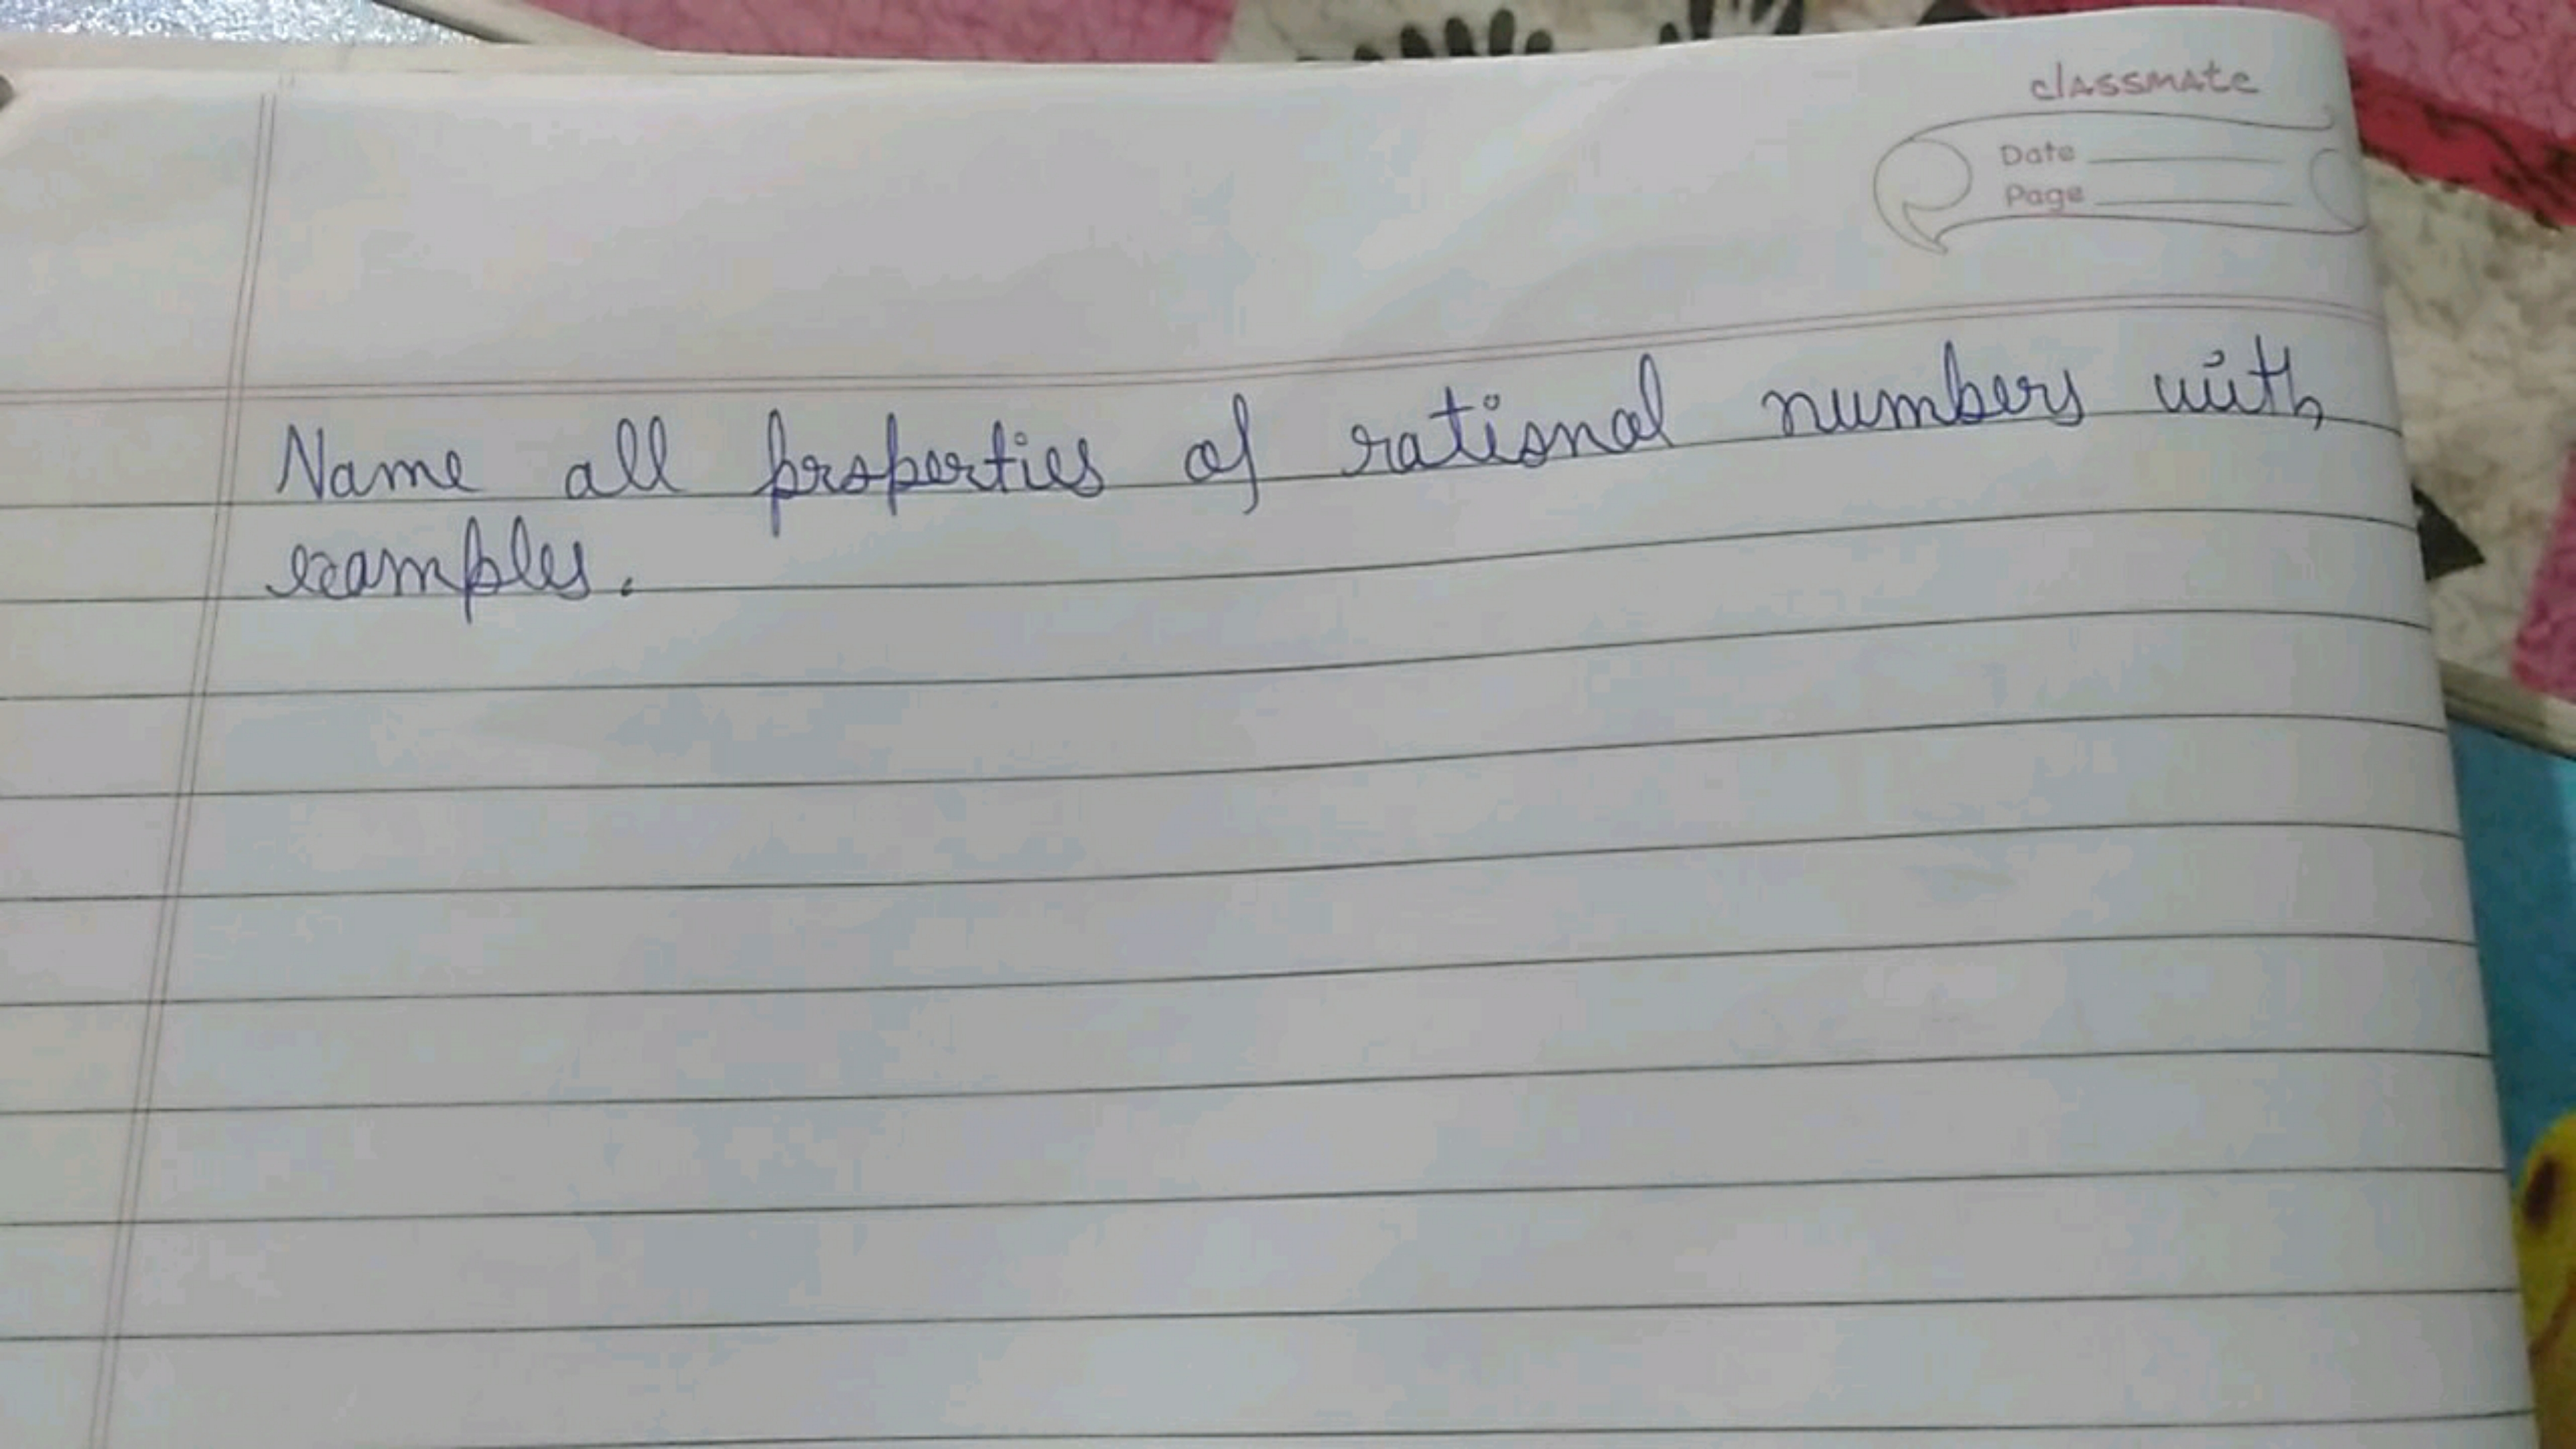 classmate
Date
Page
Name all properties of rational numbers with
examples.